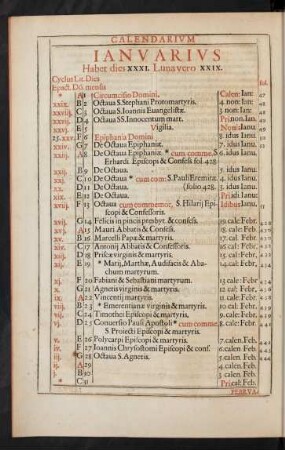 CALENDARIVM
IANVARIVS
Habet dies XXXI. Luna vero XXIX.
Cyclus Lit. Dies
Epact. Dō. mensis
* A 1 Circumcisio Domini. Calen. Ian.
xxix. B 2 Octaua S. Stephani Protomartyris. 4. non. Ian.
xxviij. C 3 Octaua S. Ioannis Euangelistæ. 3. non. Ian.
xxvij. D 4 Octaua SS. Innocentum mart. Pri. non. Ian.
xxvj. E 5 Vigilia. Non. Ianu.
F 6 Epiphania Domini 8. idus Ianu.
G 7 De Octaua Epiphaniæ. 7. idus Ianu.
A 8 De Octaua Epiphaniæ. * cum comme. S. 6. idus Ianu.
Erhardi Episcopi & Confess. fol. 428.
B 9 De Octaua. 5. idus Ianu.
xxj. C 10 De Octaua * cum com: S. Pauli Eremitæ. 4. idus Ianu.
xx. D 11 De Octaua. (folio 428. 3. idus Ianu.
xix. E 12 De Octaua. Pri. id. Ianu.
xviij. F 13 Octaua cum commemor. S. Hilarij Epi- Idibus Ianu.
scopi & Confessoris.
xvij. G 14 Felicis in pincis presbyt. & confess. 19. cal: Feb.
xvj. A 15 Mauri Abbatis & Confess. 18. cal: Feb.
xv. B 16 Marcelli Papæ & martyris. 17. cal. Feb.
xiv. C 17 Antonij Abbatis & Confessoris. 16. cal: Febr.
xiij. D 18 Priscæ virginis & martyris. 15. cal: Febr.
xij. E 19 * Marij, Marthæ, Audifacis & Aba- 14. cal. Febr.
chum martyrum.
xj. F 20 Fabiani & Sebastiani martyrum. 13. cal: Febr.
x. G 21 Agnetis virginis & martyris. 12. cal: Febr.
ix. A 22 Vincentij martyris. 11. cal. Feb.
viij. B 23 * Emerentianæ virginis & martyris. 10. cal: Febr.
vij. C 24 Timothei Episcopi & martyris. 9. cal: Febr.
vj. D 25 Conuersio Pauli Apostoli * cum comme. 8. cal. Feb.
S. Proiecti Episcopi & martyris.
v. E 26 Polycarpi Episcopi & martyris. 7. calen. Feb.
iv. F 27 Ioannis Chrysostomi Episcopi & conf. 6. calen. Feb.
iij. G 28 Octaua S. Agnetis. 5. calen. Feb.
ij. A 29 4. calen. Feb.
j. B 30 3. calen. Feb.
* C 31 Pri. cal: Feb.
FEBRVA-